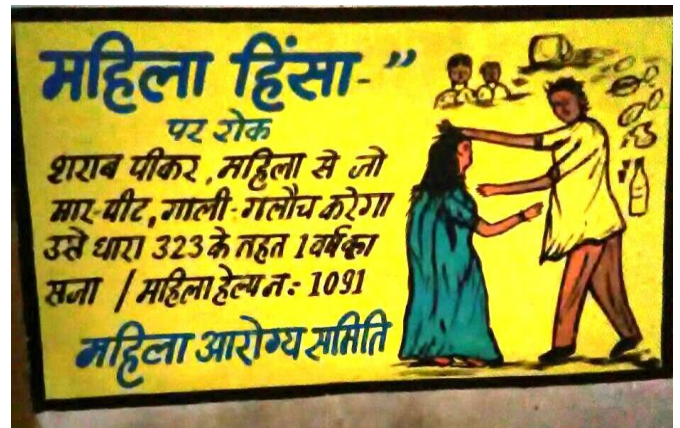 महिला हिंसा-”
पर रोक
शराब पीकर, महिला से जो
मार-पीट, गाली-गलौच करेगा
उसे धारा 323 के तहत 1 वर्ष का
सजा / महिला हेल्प न: 1091
महिला आरोग्य समिति